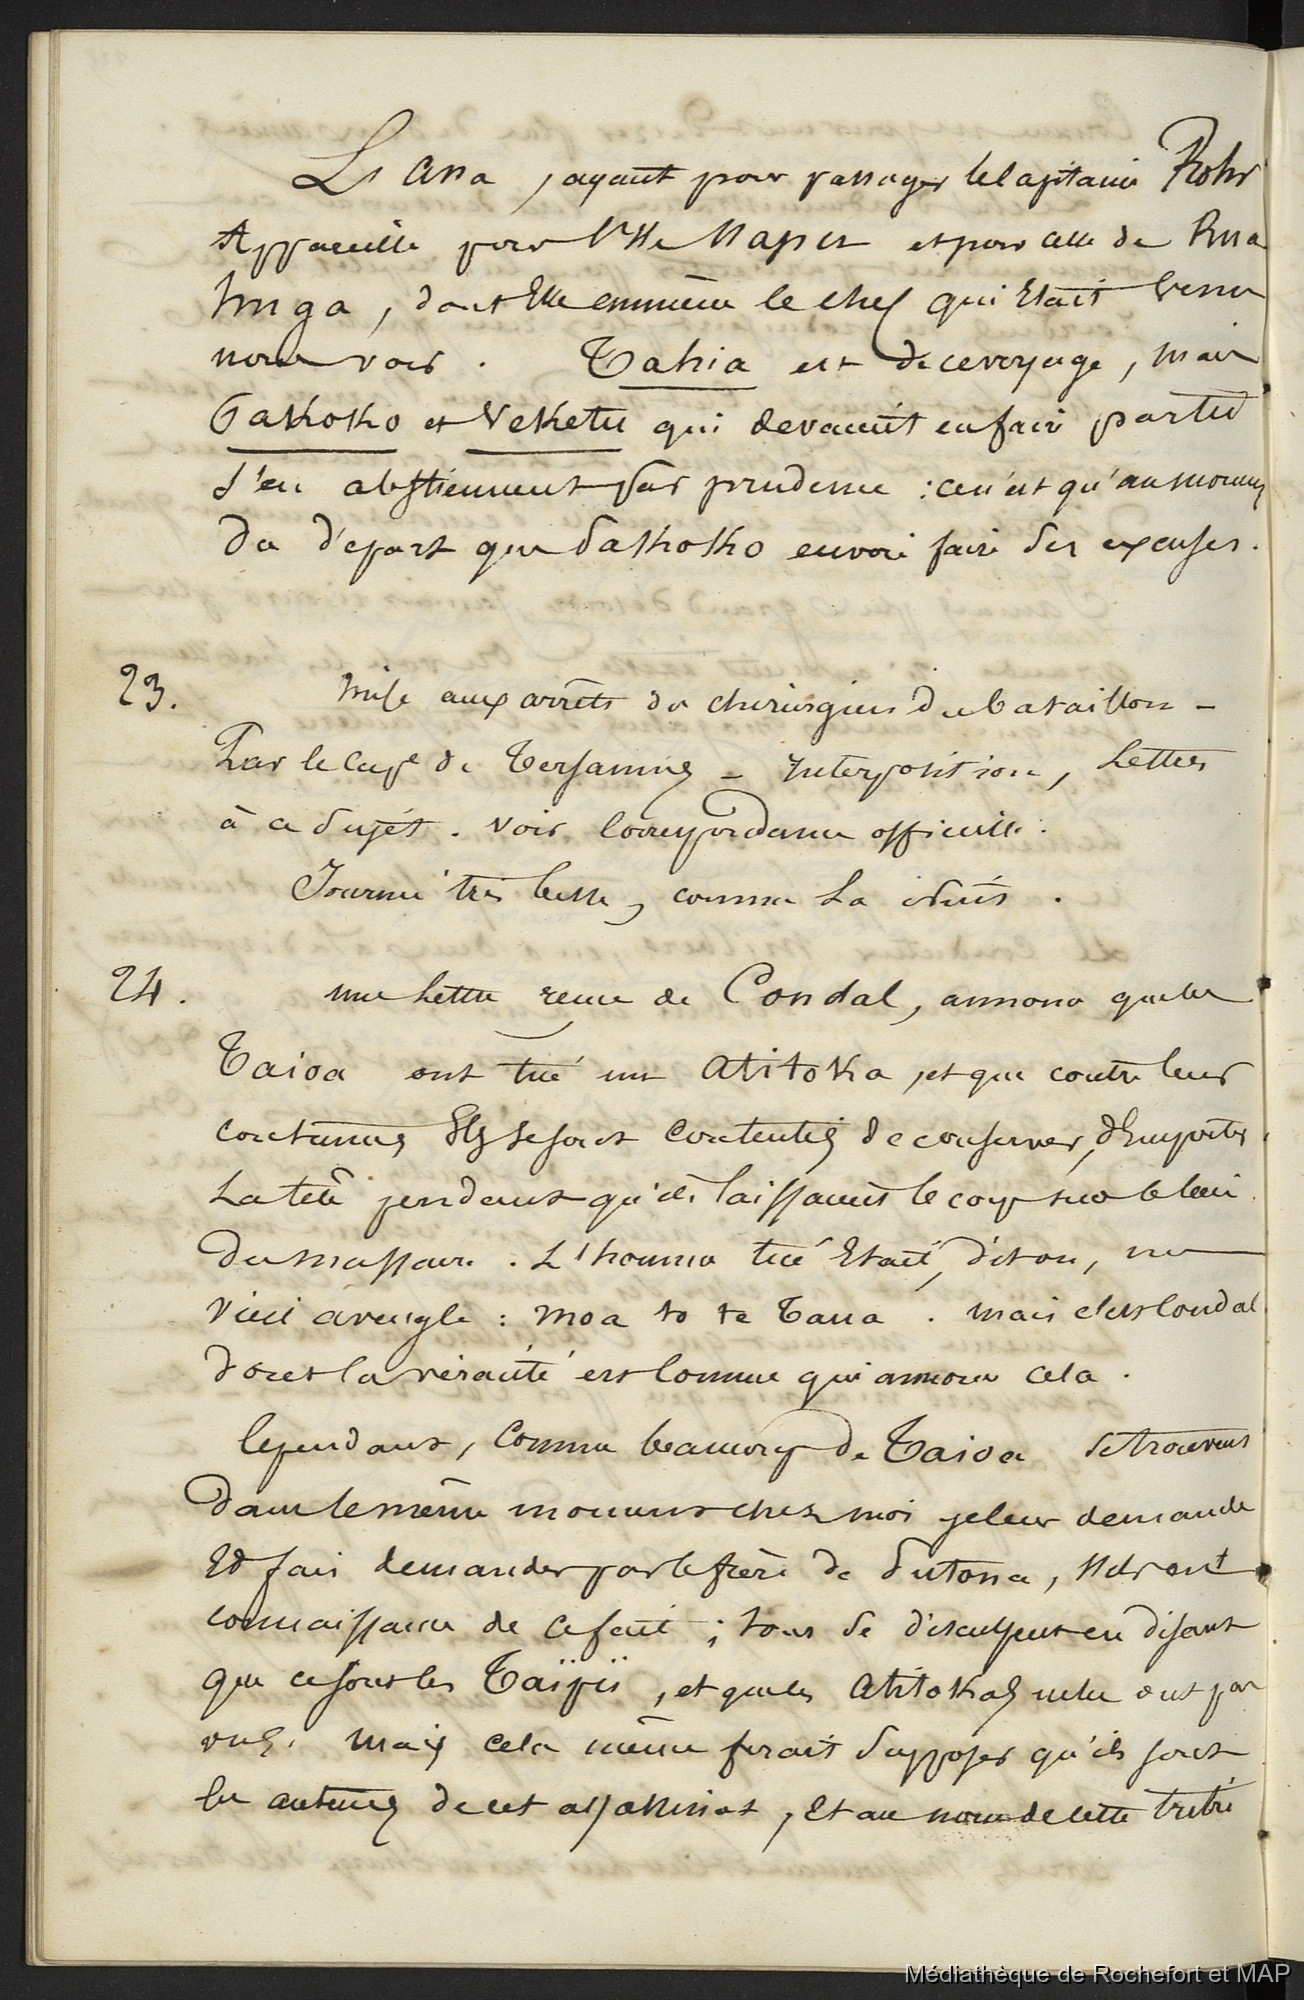 Le Assa, ayant pour passager le Capitaine Rohr
Appareille pour l'Ile Mapes et pour celle de Rua
huga, dont Elle emmène le chef qui Etait venu
nous voir. Tahia est de ce voyage, mais
Pakoko et Veketu qui devaient en faire partie
s'en abstiennent par prudence : ce n'est qu'au moment
du départ que Pakoko envoie faire ses excuses.
23. Mise aux arrêts du chirurgien du bataillon -
Par le Cape de - Interposition, Lettres
à ce sujet. Voir Correspondance officielle.
Journée très belle, comme la Nuit.
24. une Lettre reçue de Condal, annonce que les
Taioa ont tué un Atitoka, et que contre leurs
coutumes Ils se sont contentés de conserver, d'Emporter
La tête pendant qu'ils laissaient le corps sur le lieu
du massacre. L'homme tué Etait, dit on, un
vieil aveugle : Moa to te Taua. mais c'est Condal
dont la véracité est Connue qui annonce cela.
Cependant, Comme beaucoup de Taioa se trouvent
dans le même moment chez moi je leur demande
Et fais demander par le frère de , s'ils ont
connaissance de ce fait ; tous se disculpent en disant
que ce sont les Taïpiï, et que les Atitokas ne les ont pas
vus. Mais cela même ferait supposer qu'ils sont
les auteurs de cet assassinat, Et au nom de cette tribu
Médiathèque de Rochefort et MAP